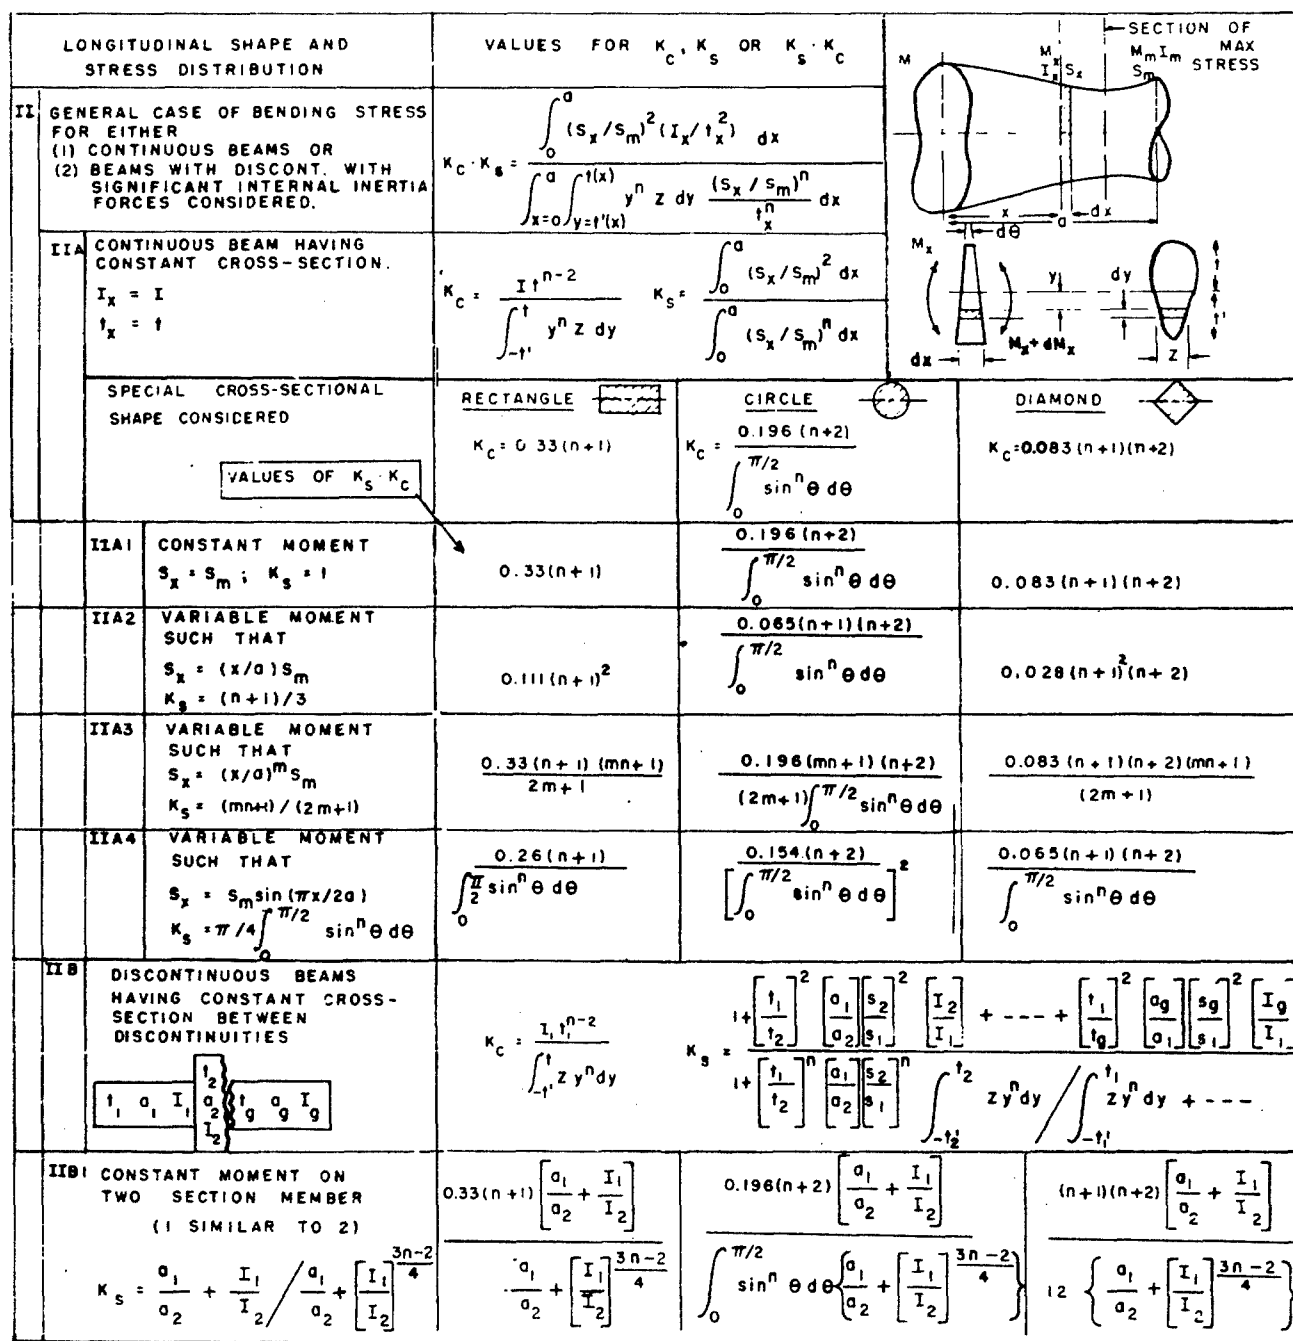 LONGITUDINAL SHAPE AND STRESS DISTRIBUTION
VALUES FOR K_C, K_S OR K_S · K_C
SECTION OF MAX STRESS
M
M_x I_x S_x
M_m I_m S_m
x
dx
a
dθ
M_x
M_x + dM_x
dx
y
dy
t
t'
Z
II GENERAL CASE OF BENDING STRESS
FOR EITHER
(1) CONTINUOUS BEAMS OR
(2) BEAMS WITH DISCONT. WITH
SIGNIFICANT INTERNAL INERTIA
FORCES CONSIDERED.
K_C · K_S = ∫_0^a (S_x/S_m)^2 (I_x/t_x^2) dx / ∫_{x=0}^a ∫_{y=t'(x)}^{t(x)} y^n Z dy (S_x/S_m)^n / t_x^n dx
IIA CONTINUOUS BEAM HAVING
CONSTANT CROSS-SECTION.
I_x = I
t_x = t
K_C = I t^{n-2} / ∫_{-t'}^t y^n Z dy
K_S = ∫_0^a (S_x/S_m)^2 dx / ∫_0^a (S_x/S_m)^n dx
SPECIAL CROSS-SECTIONAL
SHAPE CONSIDERED
VALUES OF K_S · K_C
RECTANGLE
K_C = 0.33(n+1)
CIRCLE
K_C = 0.196(n+2) / ∫_0^{π/2} sin^n θ dθ
DIAMOND
K_C = 0.083(n+1)(n+2)
IIA1 CONSTANT MOMENT
S_x = S_m ; K_S = 1
0.33(n+1)
0.196(n+2) / ∫_0^{π/2} sin^n θ dθ
0.083(n+1)(n+2)
IIA2 VARIABLE MOMENT
SUCH THAT
S_x = (x/a)S_m
K_S = (n+1)/3
0.111(n+1)^2
0.065(n+1)(n+2) / ∫_0^{π/2} sin^n θ dθ
0.028(n+1)^2(n+2)
IIA3 VARIABLE MOMENT
SUCH THAT
S_x = (x/a)^m S_m
K_S = (mn+1)/(2m+1)
0.33(n+1)(mn+1) / 2m+1
0.196(mn+1)(n+2) / (2m+1)∫_0^{π/2} sin^n θ dθ
0.083(n+1)(n+2)(mn+1) / (2m+1)
IIA4 VARIABLE MOMENT
SUCH THAT
S_x = S_m sin(πx/2a)
K_S = π/4 ∫_0^{π/2} sin^n θ dθ
0.26(n+1) / ∫_0^{π/2} sin^n θ dθ
0.154(n+2) / [∫_0^{π/2} sin^n θ dθ]^2
0.065(n+1)(n+2) / ∫_0^{π/2} sin^n θ dθ
IIB DISCONTINUOUS BEAMS
HAVING CONSTANT CROSS-
SECTION BETWEEN
DISCONTINUITIES
t_1 a_1 I_1
t_2 a_2 I_2
t_g a_g I_g
K_C = I_1 t_1^{n-2} / ∫_{-t'}^t Z y^n dy
K_S = 1+[t_1/t_2]^2 [a_1/a_2][s_2/s_1]^2 [I_2/I_1] + --- + [t_1/t_g]^2 [a_g/a_1][s_g/s_1]^2 [I_g/I_1] / 1+[t_1/t_2]^n [a_1/a_2][s_2/s_1]^n ∫_{-t_2'}^{t_2} Z y^n dy / ∫_{-t_1'}^{t_1} Z y^n dy + ---
IIB1 CONSTANT MOMENT ON
TWO SECTION MEMBER
(1 SIMILAR TO 2)
K_S = a_1/a_2 + I_1/I_2 / a_1/a_2 + [I_1/I_2]^{3n-2/4}
0.33(n+1)[a_1/a_2 + I_1/I_2] / a_1/a_2 + [I_1/I_2]^{3n-2/4}
0.196(n+2)[a_1/a_2 + I_1/I_2] / ∫_0^{π/2} sin^n θ dθ {a_1/a_2 + [I_1/I_2]^{3n-2/4}}
(n+1)(n+2)[a_1/a_2 + I_1/I_2] / 12 {a_1/a_2 + [I_1/I_2]^{3n-2/4}}